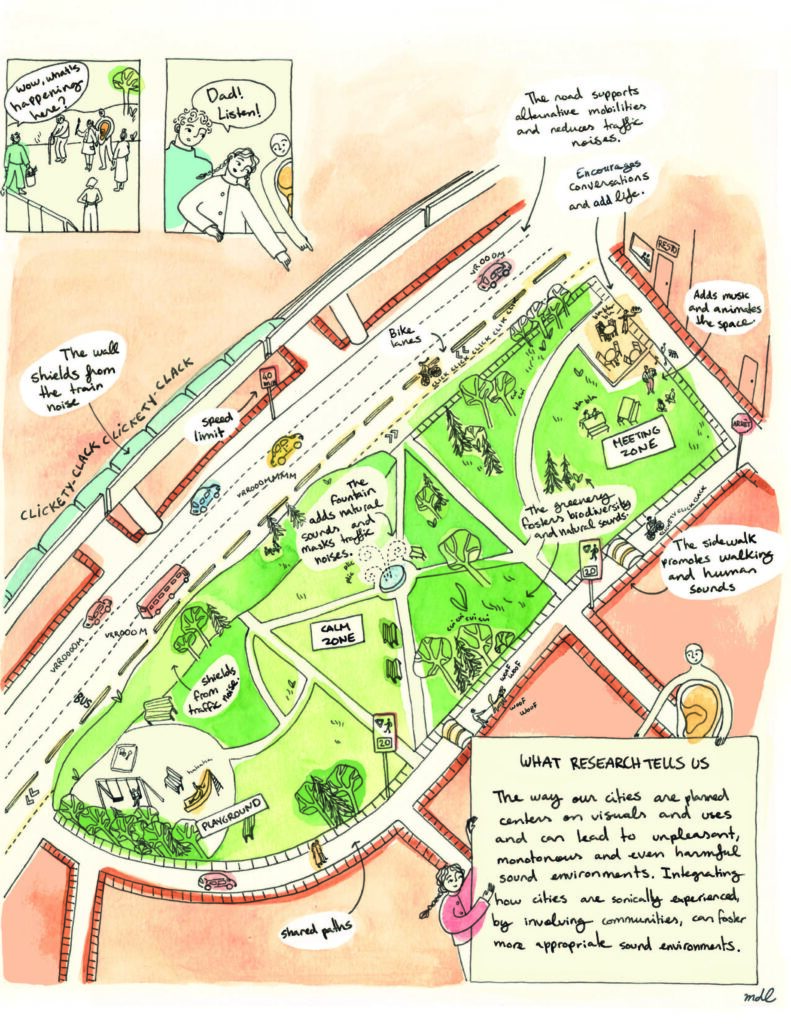 Wow, what's
happening
here?
Dad!
Listen!
The road supports
alternative mobilities
and reduces traffic
noises.
Encourages
conversations
and add life.
RESTO
Adds music
and animates
the space.
VROOOM
Bike
lanes
CLIC CLIC CLICK CLIK CLIK
The wall
shields from
the train
noise
CLICKETY-CLACK CLICKETY-CLACK
40
MAX
speed
limit
bla bla
bla bla
MEETING
ZONE
ARRET
VRROOOMMMM
The
fountain
adds natural
sounds and
masks traffic
noises.
The greenery
fosters biodiversity
and natural sounds.
20
The sidewalk
promotes walking
and human
sounds
CALM
ZONE
cui cui cui cui
VRROOOM
VRROOOM
BUS
shields
from
traffic noise.
WOOF
WOOF
WOOF
WOOF
20
hahaha
PLAYGROUND
shared paths
WHAT RESEARCH TELLS US
The way our cities are planned
centers on visuals and uses
and can lead to unpleasant,
monotonous and even harmful
sound environments. Integrating
how cities are sonically experienced,
by involving communities, can foster
more appropriate sound environments.
mdl